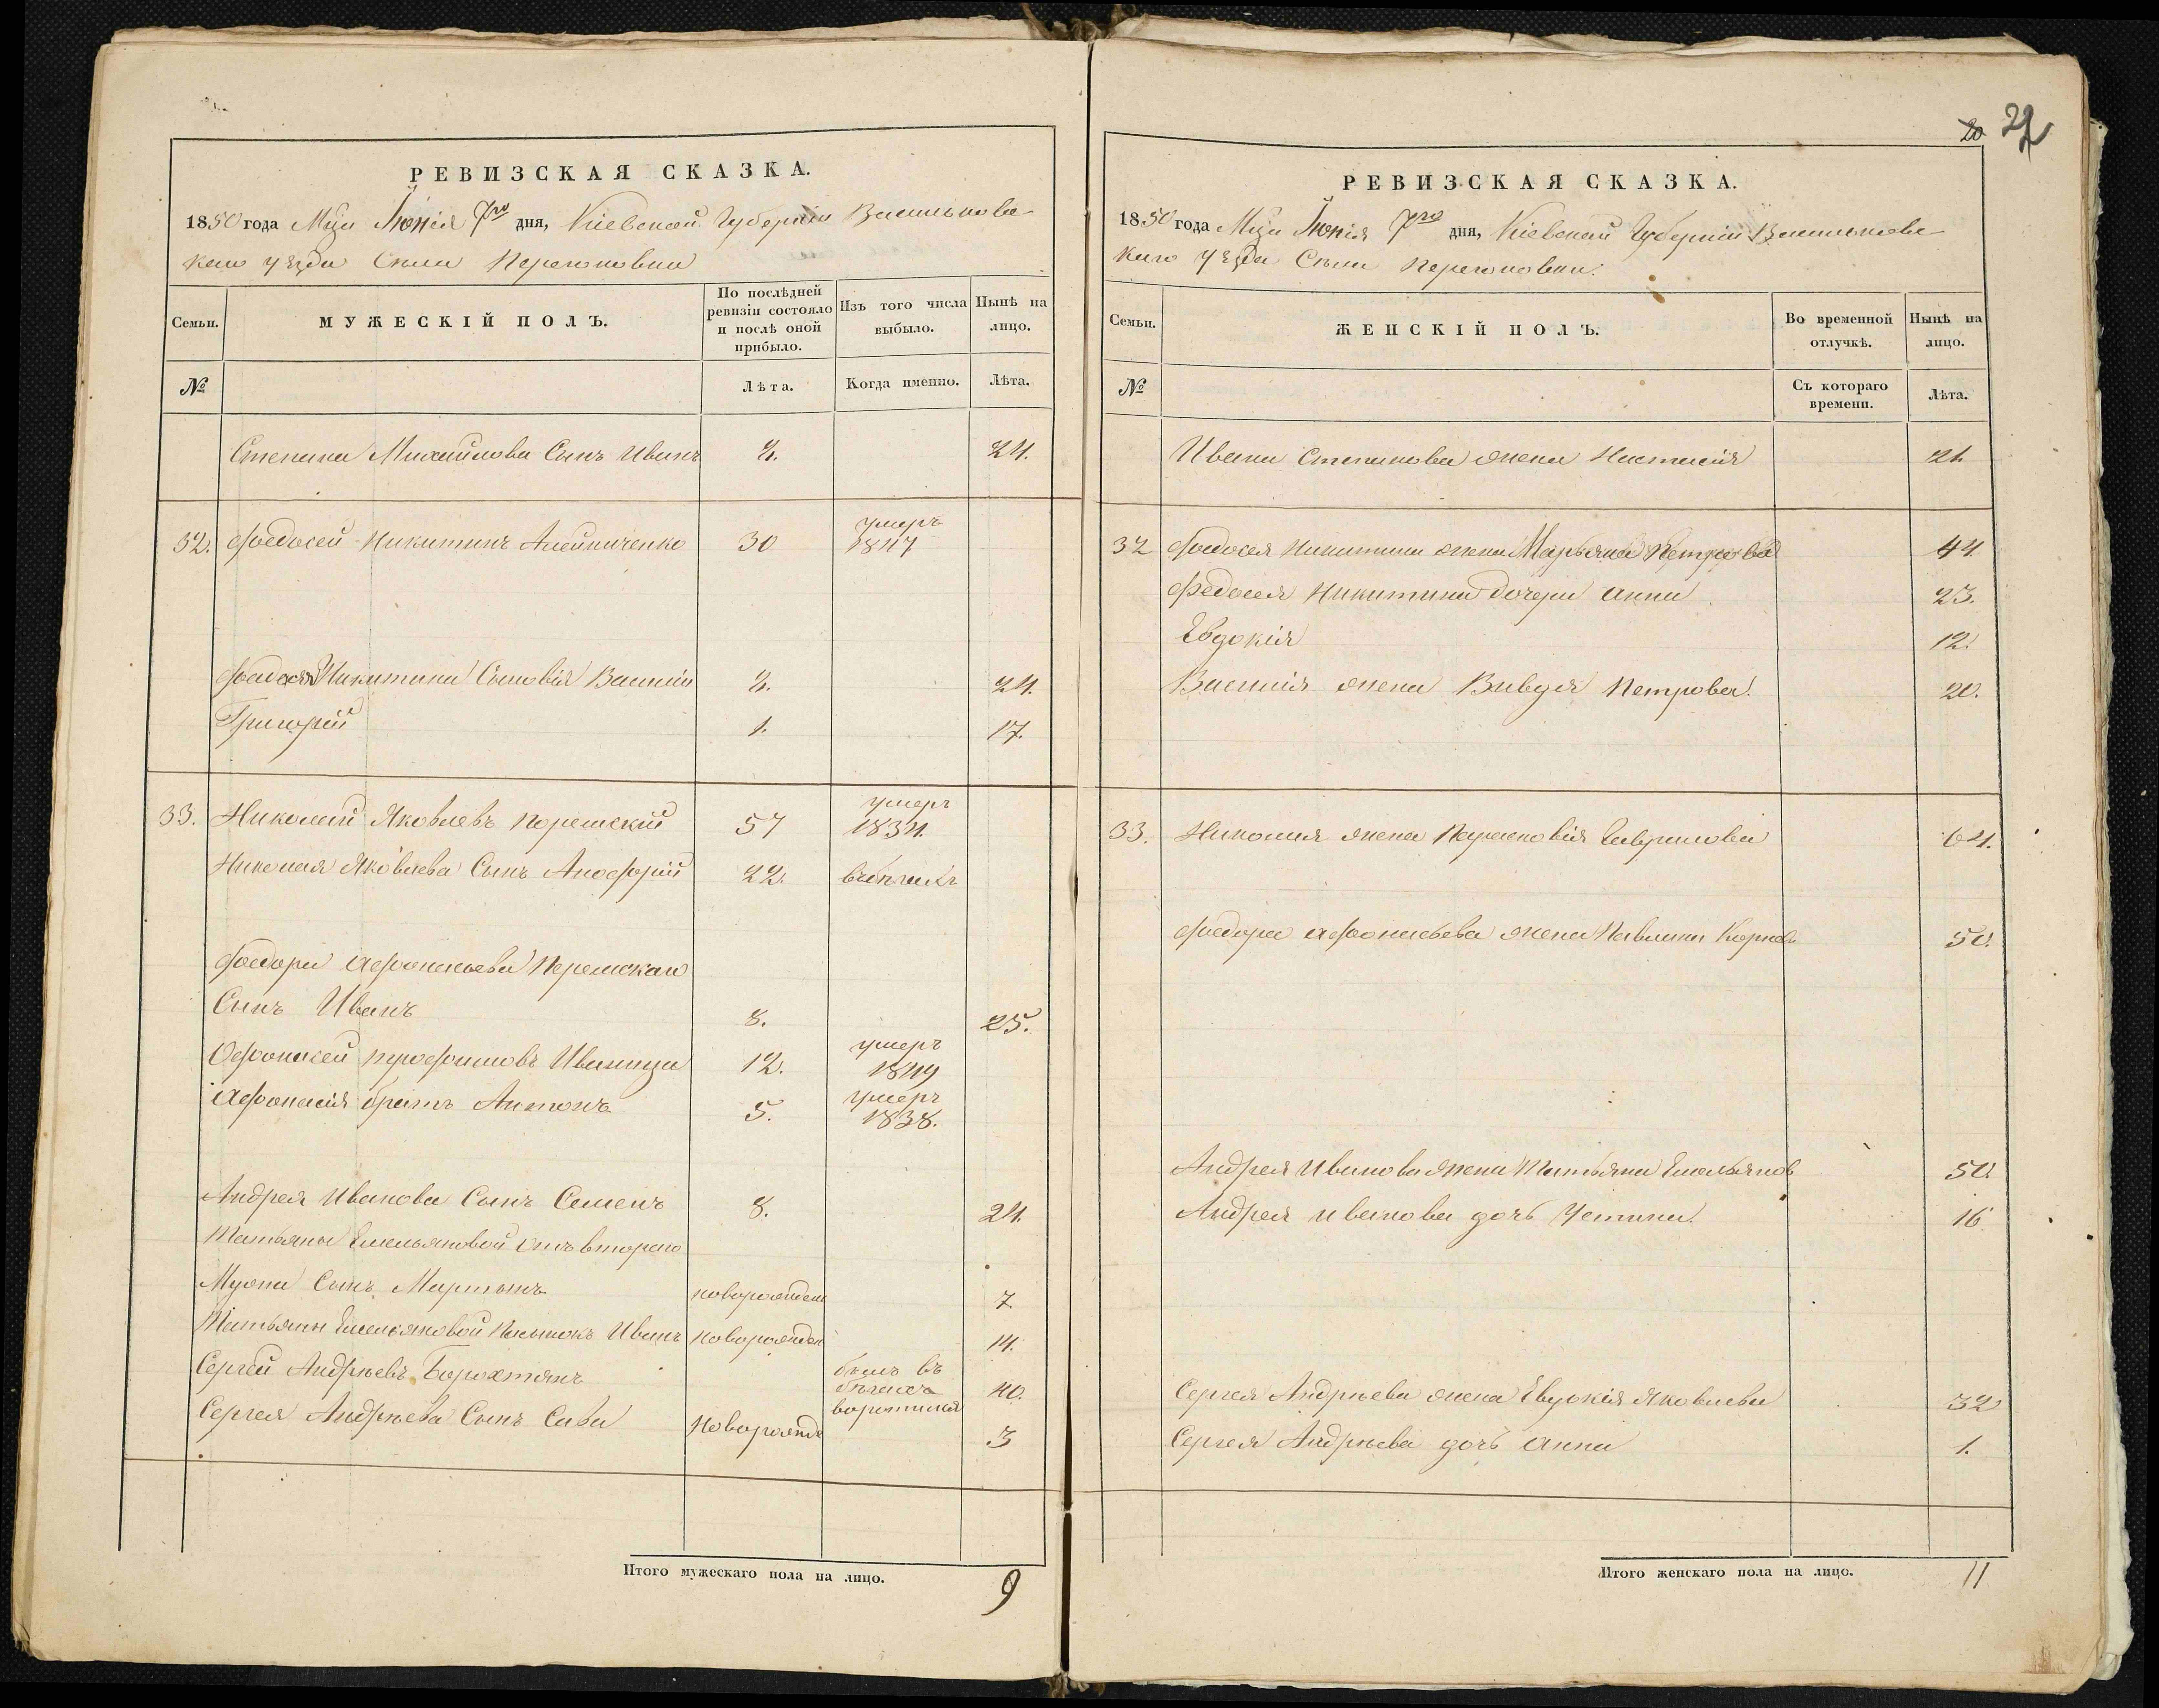 РЕВИЗСКАЯ СКАЗКА.
1850 года Мца Іюнія 7го дня, Кіевской Губерніи Васильковс-
каго уѣзда Села Перегоновки
Семьи. МУЖЕСКІЙ ПОЛЪ. По послѣдней ревизіи состояло и послѣ оной прибыло. Изъ того числа выбыло. Нынѣ на лицо.
№ Лѣта. Когда именно. Лѣта.
Степана Михайлова Сынъ Иванъ 7. 24.
32. Федосей Никитинъ Алейниченко 30 умеръ 1847
Федосея Никитина Сыновія Василій 7. 24.
Григорій 1. 17.
33. Николай Яковлевъ 57 умеръ 1834.
Николая Яковлева Сынъ 22. въ бѣгахъ
Федора Афонасьева
Сынъ Иванъ 8. 25.
Офонасей Трофимовъ Иваница 12. умеръ 1849
Афонасія братъ Антонъ 5. умеръ 1838.
Андрея Иванова Сынъ Семенъ 8. 24.
Татьяны Емельяновой отъ втораго
Мужа Сынъ Мартынъ новорожден 7.
Татьяны Емельяновой Иванъ новорожден 14.
Сергей Андрѣевъ Борохтянъ былъ въ бѣгахъ воротился 40.
Сергея Андрѣева Сынъ Сава Новорожд 3
Итого мужескаго пола на лицо. 9
20 22
РЕВИЗСКАЯ СКАЗКА.
1850 года Мца Іюнія 7го дня, Кіевской Губерніи Васильковс-
каго уѣзда Села Перегоновки.
Семьи. ЖЕНСКІЙ ПОЛЪ. Во временной отлучкѣ. Нынѣ на лицо.
№ Съ котораго времени. Лѣта.
Ивана Степанова жена Настасія 21.
32 Федосея Никитина жена Марьяна Петрова 44.
Федосея Никитина дочери Анна 23.
Евдокія 12.
Василія жена Вивдя Петрова. 20.
33. Николая жена Парасковія Гаврилова 64.
Федора Афонасьева жена 50.
Андрея Иванова жена Татьяна Емельянов 50.
Андрея Иванова дочь Устина. 16.
Сергея Андрѣева жена Евдокія Яковлева 32
Сергея Андрѣева дочь Анна 1.
Итого женскаго пола на лицо. 11